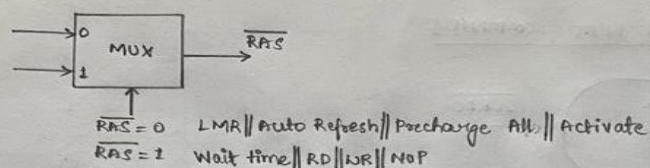 0
MUX
R̅A̅S̅
1
R̅A̅S̅ = 0 LMR || Auto Refresh || Precharge All || Activate
R̅A̅S̅ = 1 Wait time || RD || WR || NOP